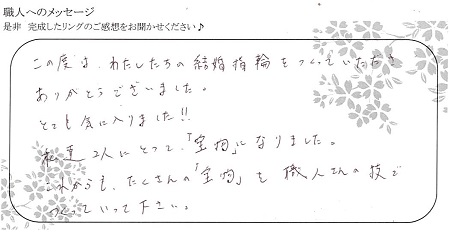 職人へのメッセージ
是非 完成したリングのご感想をお聞かせください♪
この度は、わたしたちの結婚指輪をつくっていただき
ありがとうございました。
とても気に入りました!!
私達2人にとって、「宝物」になりました。
これからも、たくさんの「宝物」を職人さんの技で
つくっていって下さい。